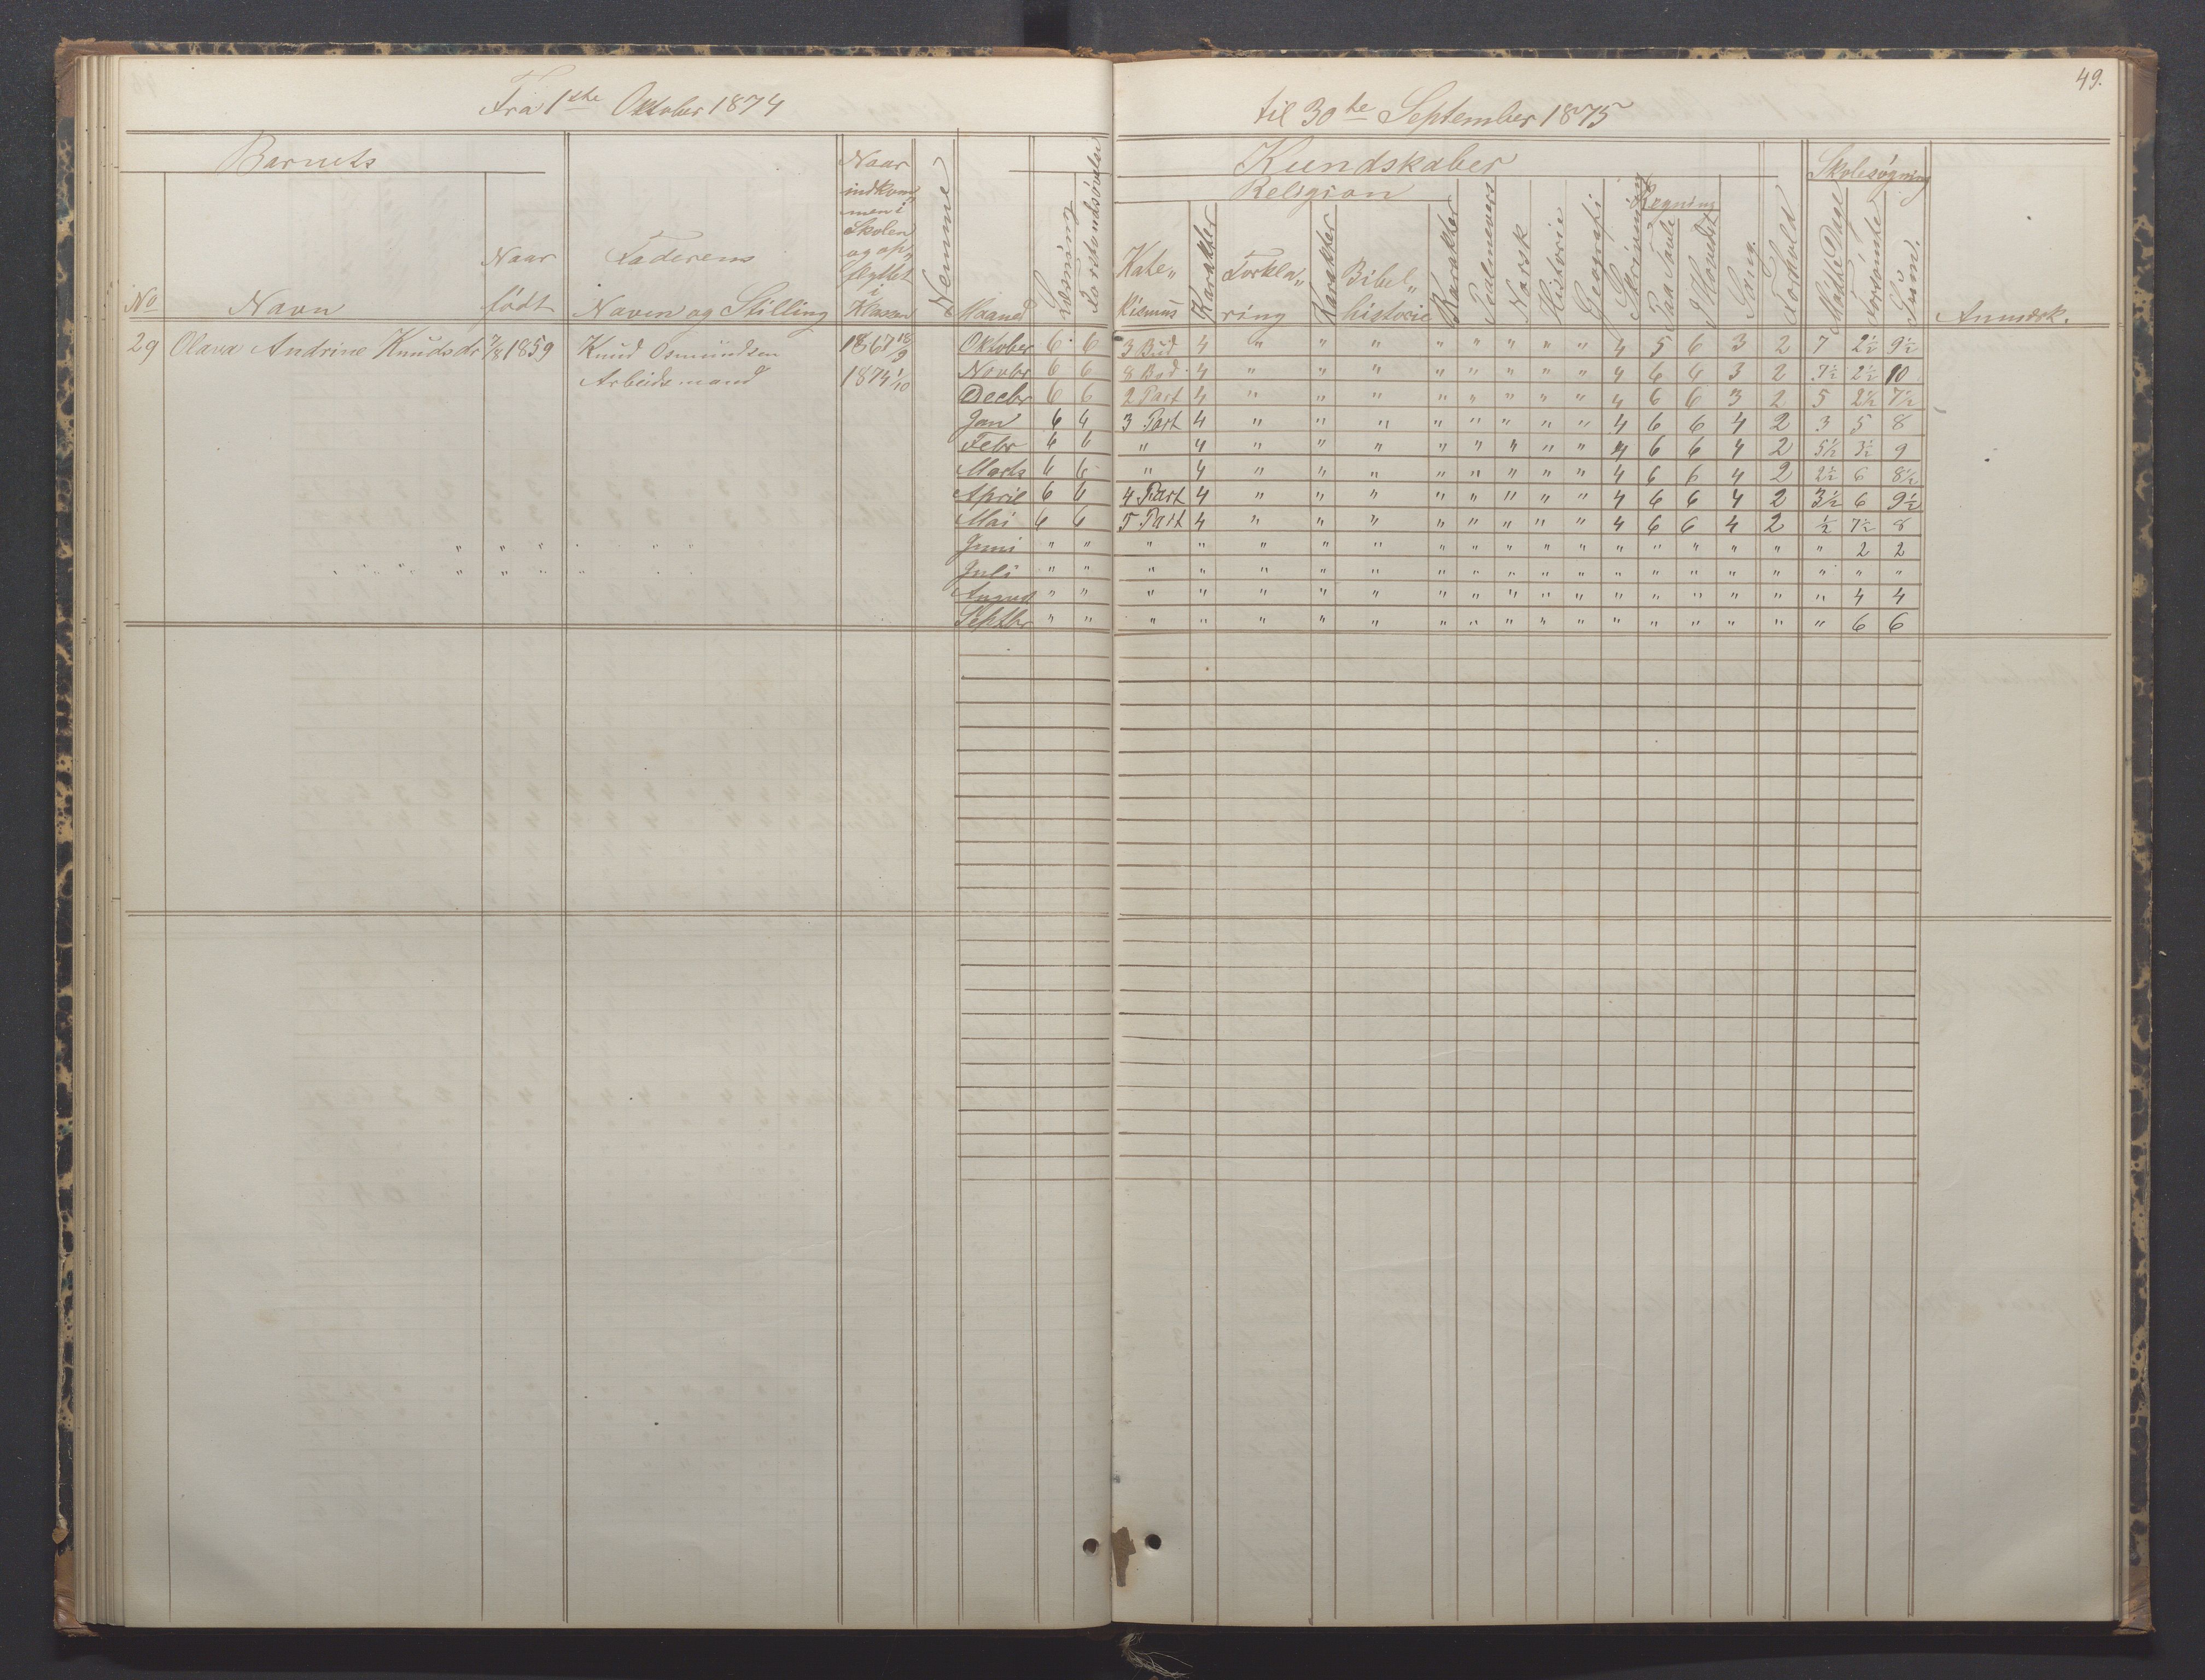 49.
Fra 1ste Oktober 1874 til 30te September 1875
Barnets Kundskaber Skolesøgning
Religion Regning
No Navn Naar født Faderens Navn og Stilling Naar indkommen i Skolen og opflyttet i Klassen Nemme Maaned Læsning Forstandsøvelse Kate„kismus Karakter Forkla„ring Karakter Bibel„historie Karakter Psalmevers Norsk Historie Geografi Skrivning Paa Tavle I Hovedet Sang. Forhold Mødte Dage Forsømte Sum. Anmærk.
29 Olava Andrine Knudsdr 7/8 1859 Knud Osmundsen 1867 18/9 Oktober 6 6 3 Bud 4 " " " " " " " " 4 5 6 3 2 7 2½ 9½
Arbeidsmand 1874 1/10 Novbr 6 6 8 Bud 4 " " " " " " " " 4 6 6 3 2 7½ 2½ 10
Decbr 6 6 2 Part 4 " " " " " " " " 4 6 6 3 2 5 2½ 7½
Jan 6 4 3 Part 4 " " " " " " " " 4 6 6 4 2 3 5 8
Febr 6 6 " 4 " " " " " " " " 4 6 6 4 2 5½ 3½ 9
Marts 6 6 " 4 " " " " " " " " 4 6 6 4 2 2½ 6 8½
April 6 6 4 Part 4 " " " " " " " " 4 6 6 4 2 3½ 6 9½
Mai 6 6 5 Part 4 " " " " " " " " 4 6 6 4 2 ½ 7½ 8
Juni " " " " " " " " " " " " " " " " " " 2 2
Juli " " " " " " " " " " " " " " " " " " " "
August " " " " " " " " " " " " " " " " " " 4 4
Septbr " " " " " " " " " " " " " " " " " " 6 6